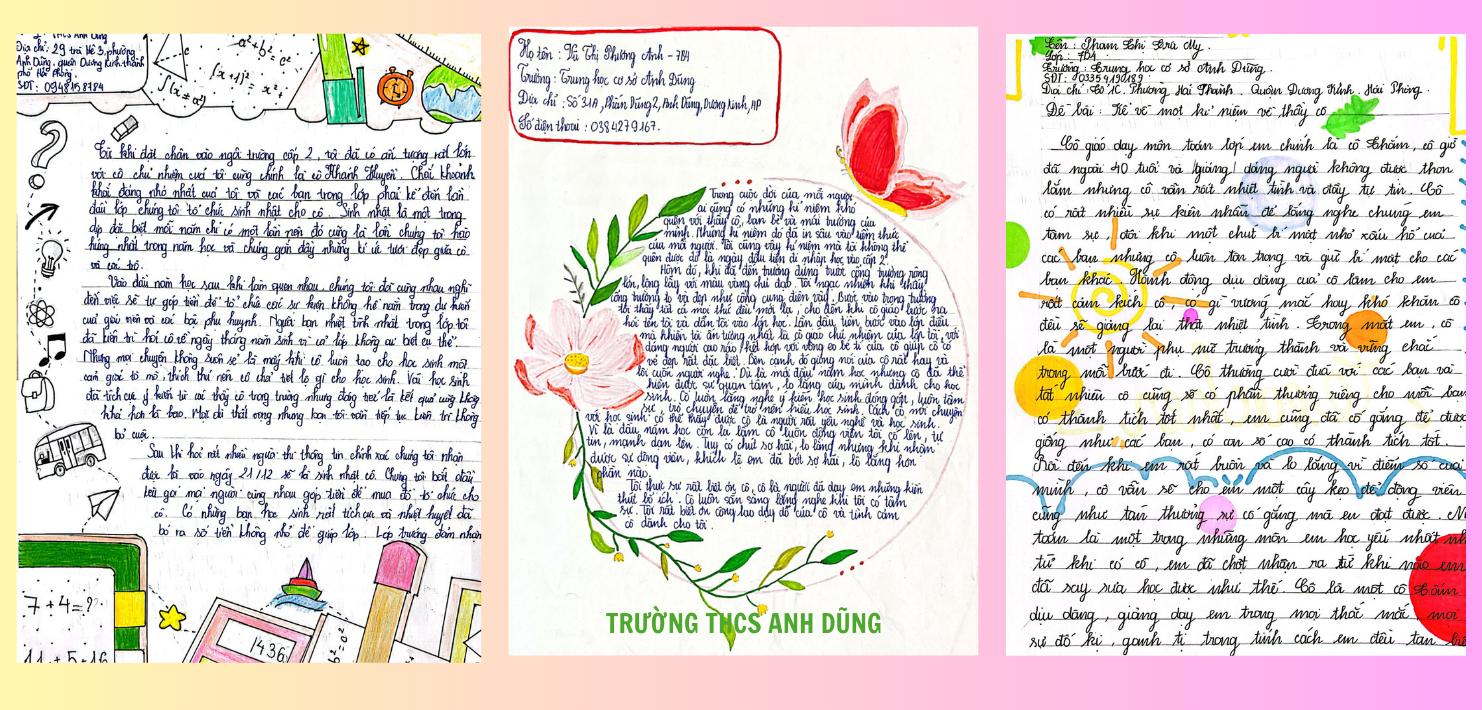 THCS Anh Dũng
Địa chỉ: 29 trà khê 3, phường
Anh Dũng, quận Dương Kinh, thành
phố Hải Phòng.
SĐT: 0948158784
a²+b²=c²
Từ khi đặt chân vào ngôi trường cấp 2, tôi đã có ấn tượng rất lớn
với cô chủ nhiệm của tôi cũng chính là cô Khánh Huyền. Chắc khoảnh
khắc đáng nhớ nhất của tôi và các bạn trong lớp phải kể đến lần
đầu lớp chúng tôi tổ chức sinh nhật cho cô. Sinh nhật là một trong
dịp đặc biệt mỗi năm chỉ có một lần nên đó cũng là lần chúng tôi hào
hứng nhất trong năm học và chứng gắn đầy những kí ức tươi đẹp giữa cô
và các trò.
Vào đầu năm học sau khi làm quen nhau, chúng tôi đã cùng nhau nghĩ
đến việc sẽ tự góp tiền để tổ chức các sự kiện không hề nằm trong dự kiến
của giáo viên và các bậc phụ huynh. Người bạn nhiệt tình nhất trong lớp tôi
đã kiên trì hỏi cô về ngày tháng năm sinh vì cả lớp không ai biết cụ thể.
Nhưng mọi chuyện không suôn sẻ là mấy khi cô luôn tạo cho học sinh một
cảm giác tò mò, thích thú nên cô chả tiết lộ gì cho học sinh. Vài học sinh
đã tích cực ý kiến từ các thầy cô trong trường nhưng đáng tiếc là kết quả cũng không
khá hơn là bao. Mọi di thất vọng nhưng bạn tôi vẫn tiếp tục kiên trì không
bỏ cuộc.
Sau khi hỏi rất nhiều người thì thông tin chính xác chúng tôi nhận
được là vào ngày 21/12 sẽ là sinh nhật cô. Chúng tôi bắt đầu
kêu gọi mọi người cùng nhau góp tiền để mua đồ tổ chức cho
cô. Có những bạn học sinh rất tích cực và nhiệt huyết đã
bỏ ra số tiền không nhỏ để giúp lớp. Lớp trưởng đảm nhận
7+4=?
11+5+16
1436
Họ tên: Vũ Thị Phương Anh - 7B4
Trường: Trung học cơ sở Anh Dũng
Địa chỉ: Số 31A, Phấn Dũng 2, Anh Dũng, Dương Kinh, HP
Số điện thoại: 0384279167.
Trong cuộc đời của mỗi người
ai cũng có những kỉ niệm khó
quên với thầy cô, bạn bè và mái trường của
mình. Những kỉ niệm đó đã in sâu vào tiềm thức
của mỗi người. Tôi cũng vậy kỉ niệm mà tôi không thể
quên được đó là ngày đầu tiên đi nhận học vào cấp 2.
Hôm đó, khi đã đến trường đứng trước cổng trường rộng
lớn, lộng lẫy với màu vàng chủ đạo. Tôi ngạc nhiên khi thấy
cổng trường to và đẹp như cổng cung điện vậy. Bước vào trong trường
tôi thấy tất cả mọi thứ đều mới lạ, cho đến khi cô giáo bước ra
hỏi tên tôi và dẫn tôi vào lớp học. Lần đầu tiên bước vào lớp điều
mà khiến tôi ấn tượng nhất là cô giáo chủ nhiệm của lớp tôi, với
dáng người cao ráo kết hợp với vòng eo bé tí của cô giúp cô có
vẻ đẹp rất đặc biệt. Bên cạnh đó giọng nói của cô rất hay và
lôi cuốn người nghe. Dù là mới đầu năm học nhưng cô đã thể
hiện được sự quan tâm, lo lắng của mình dành cho học
sinh. Cô luôn lắng nghe ý kiến học sinh đóng góp, luôn tâm
sự trò chuyện để trở nên hiểu học sinh. Cách cô nói chuyện
với học sinh có thể thấy được cô là người rất yêu nghề và học sinh.
Vì là đầu năm học còn lạ lẫm cô luôn động viên tôi cố lên, tự
tin, mạnh dạn lên. Tuy có chút sợ hãi, lo lắng nhưng khi nhận
được sự động viên, khích lệ em đã bớt sợ hãi, lo lắng hơn
phần nào.
Tôi thực sự rất biết ơn cô, cô là người đã dạy em những kiến
thức bổ ích. Cô luôn sẵn sàng lắng nghe khi tôi có tâm
sự. Tôi rất biết ơn công lao dạy dỗ của cô và tình cảm
cô dành cho tôi.
TRƯỜNG THCS ANH DŨNG
Tên: Phạm Thị Trà My.
Lớp: 7D4
Trường: Trung học cơ sở Anh Dũng.
SĐT: 0335419189
Địa chỉ: Tổ 1C. Phường Hải Thành. Quận Dương Kinh. Hải Phòng.
Đề bài: Kể về một kỉ niệm về thầy cô
Cô giáo dạy môn toán lớp em chính là cô Thắm, cô giờ
đã ngoài 40 tuổi và (giáng) dáng người không được thon
lắm nhưng cô vẫn rất nhiệt tình và đầy tự tin. Cô
có rất nhiều sự kiên nhẫn để lắng nghe chúng em
tâm sự, đôi khi một chút bí mật nhỏ xấu hổ của
các bạn nhưng cô luôn tôn trọng và giữ bí mật cho các
bạn khác. Hành động dịu dàng của cô làm cho em
rất cảm kích cô, có gì vướng mắc hay khó khăn cô
đều sẽ giảng lại thật nhiệt tình. Trong mắt em, cô
là một người phụ nữ trưởng thành và vững chãi
trong mỗi bước đi. Cô thường cười đùa với các bạn và
tất nhiên cô cũng sẽ có phần thưởng riêng cho mỗi bạn
có thành tích tốt nhất, em cũng đã cố gắng để được
giống như các bạn, có con số cao có thành tích tốt.
Rồi đến khi em rất buồn và lo lắng vì điểm số của
mình, cô vẫn sẽ cho em một cây kẹo để động viên
cũng như tán thưởng sự cố gắng mà em đạt được.
toán là một trong những môn em học yếu nhất
từ khi có cô, em đã chợt nhận ra từ khi nào em
đã say sưa học được như thế. Cô là một cô
dịu dàng, giảng dạy em trong mọi thắc mắc, mọi
sự đố kị, ganh tị trong tính cách em đều tan